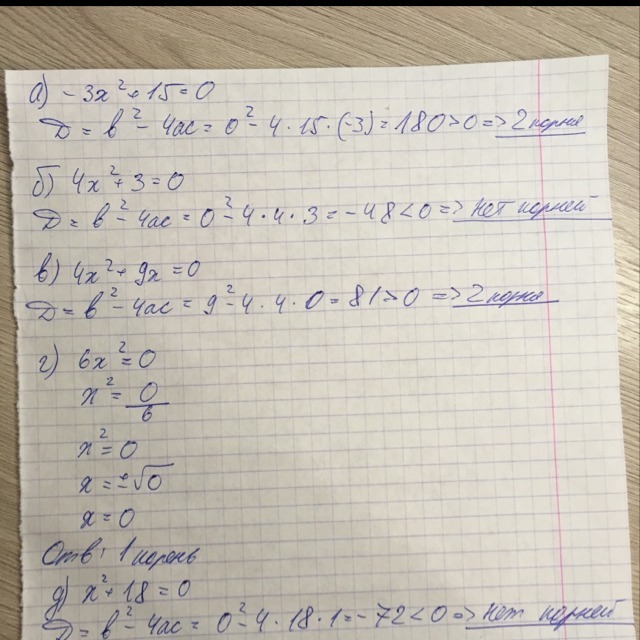 а) -3x² + 15 = 0
Д = в² - 4ас = 0² - 4 · 15 · (-3) = 180 > 0 => 2 корня
б) 4x² + 3 = 0
Д = в² - 4ас = 0² - 4 · 4 · 3 = -48 < 0 => Нет корней
в) 4x² + 9x = 0
Д = в² - 4ас = 9² - 4 · 4 · 0 = 81 > 0 => 2 корня
г) 6x² = 0
x² = 0/6
x² = 0
x = ±√0
x = 0
Отв: 1 корень
д) x² + 18 = 0
Д = в² - 4ас = 0² - 4 · 18 · 1 = -72 < 0 => Нет корней